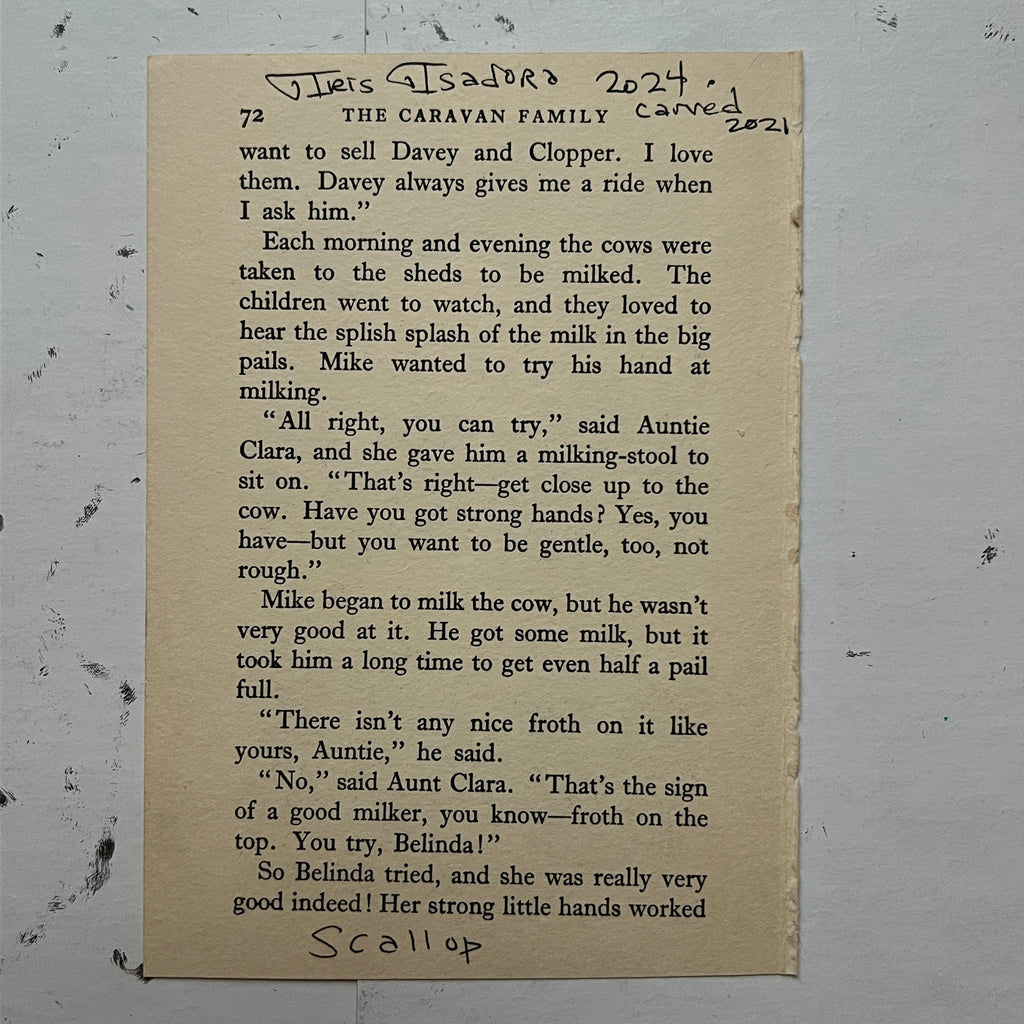 Iris Isadora 2024.
carved
2021
72 THE CARAVAN FAMILY
want to sell Davey and Clopper. I love
them. Davey always gives me a ride when
I ask him.”
Each morning and evening the cows were
taken to the sheds to be milked. The
children went to watch, and they loved to
hear the splish splash of the milk in the big
pails. Mike wanted to try his hand at
milking.
“All right, you can try,” said Auntie
Clara, and she gave him a milking-stool to
sit on. “That’s right—get close up to the
cow. Have you got strong hands? Yes, you
have—but you want to be gentle, too, not
rough.”
Mike began to milk the cow, but he wasn’t
very good at it. He got some milk, but it
took him a long time to get even half a pail
full.
“There isn’t any nice froth on it like
yours, Auntie,” he said.
“No,” said Aunt Clara. “That’s the sign
of a good milker, you know—froth on the
top. You try, Belinda!”
So Belinda tried, and she was really very
good indeed! Her strong little hands worked
Scallop